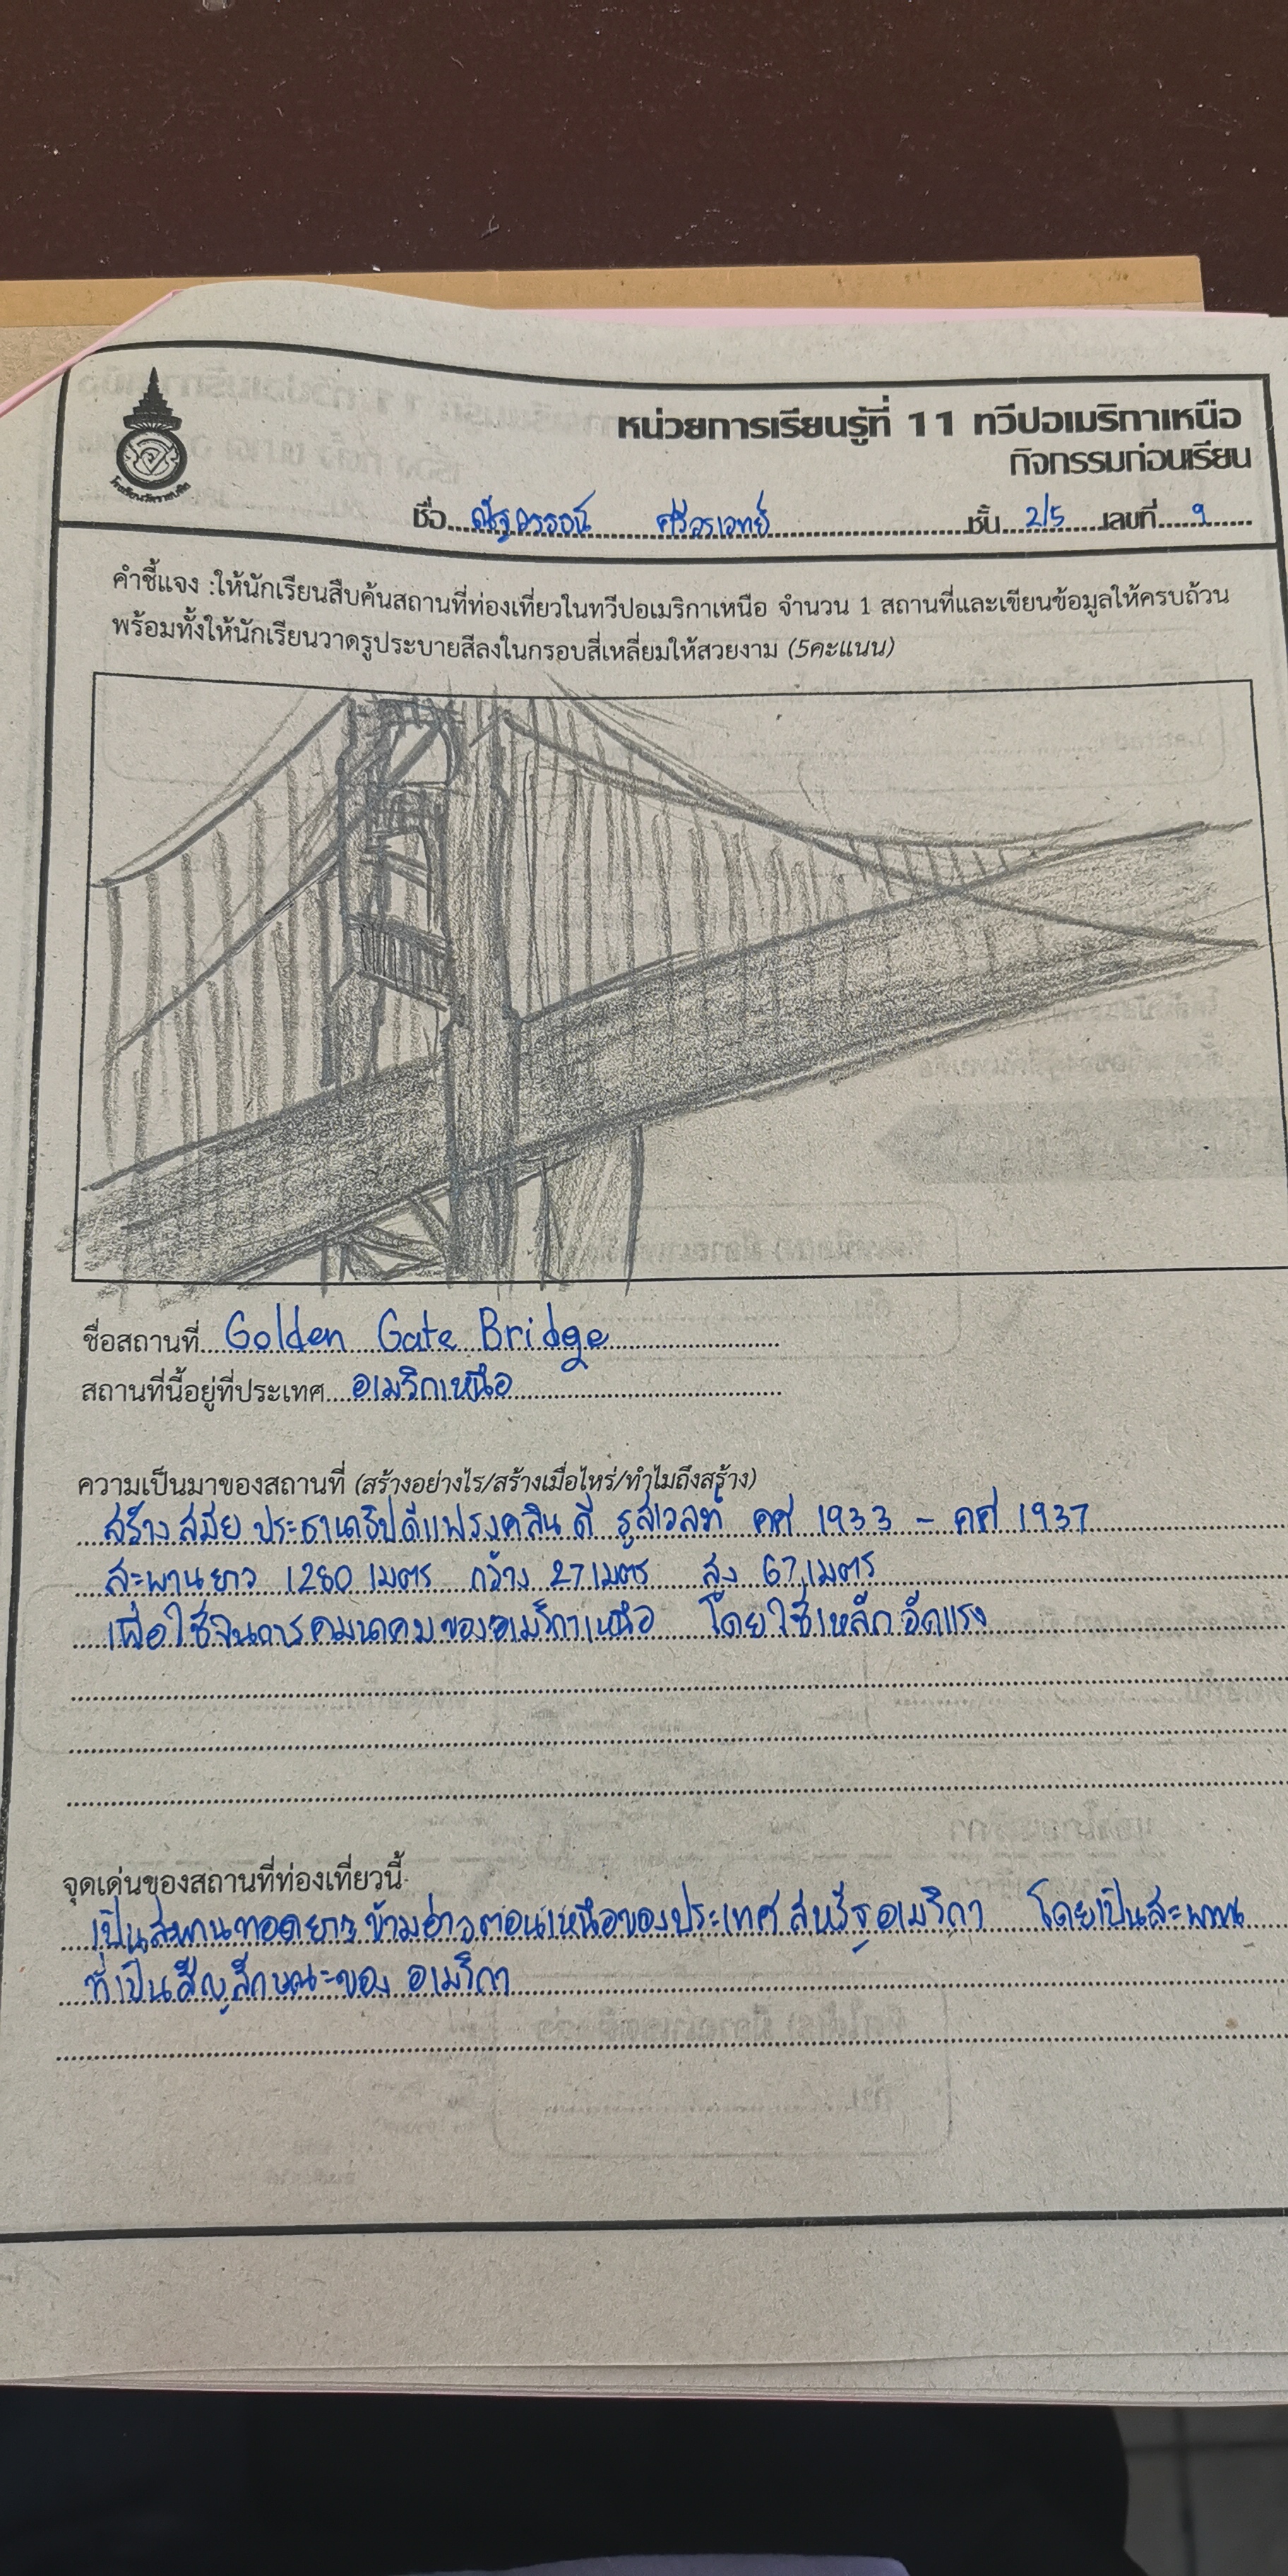 หน่วยการเรียนรู้ที่ 11 ทวีปอเมริกาเหนือ
กิจกรรมก่อนเรียน
ชื่อ ณัฐวรรธน์ ศรีวรเวทย์ ชั้น 2/5 เลขที่ 9
คำชี้แจง :ให้นักเรียนสืบค้นสถานที่ท่องเที่ยวในทวีปอเมริกาเหนือ จำนวน 1 สถานที่และเขียนข้อมูลให้ครบถ้วน
พร้อมทั้งให้นักเรียนวาดรูประบายสีลงในกรอบสี่เหลี่ยมให้สวยงาม (5คะแนน)
ชื่อสถานที่ Golden Gate Bridge
สถานที่นี้อยู่ที่ประเทศ อเมริกาเหนือ
ความเป็นมาของสถานที่ (สร้างอย่างไร/สร้างเมื่อไหร่/ทำไมถึงสร้าง)
สร้างสมัย ประธานาธิปดีแฟรงคลิน ดี รูสเวลท์ คศ 1933 - คศ 1937
สะพานยาว 1280 เมตร กว้าง 27 เมตร สูง 67 เมตร
เพื่อใช้ในการคมนาคมของอเมริกาเหนือ โดยใช้เหล็กอัดแรง
จุดเด่นของสถานที่ท่องเที่ยวนี้
เป็นสะพานทอดยาวข้ามอ่าวตอนเหนือของประเทศสหรัฐอเมริกา โดยเป็นสะพาน
ที่เป็นสัญลักษณะของ อเมริกา